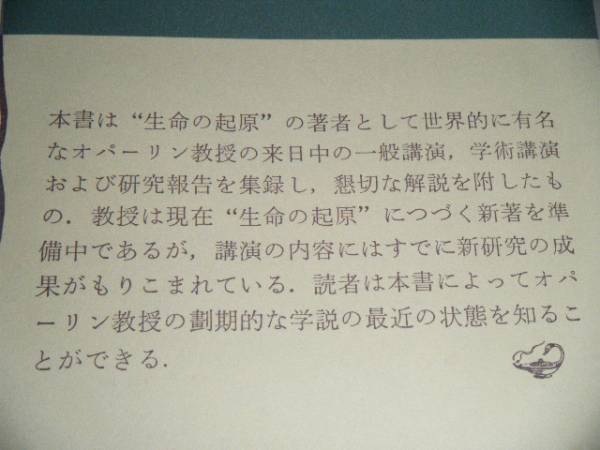 本書は “生命の起原” の著者として世界的に有名
なオパーリン教授の来日中の一般講演，学術講演
および研究報告を集録し，懇切な解説を附したも
の．教授は現在 “生命の起原” につづく新著を準
備中であるが，講演の内容にはすでに新研究の成
果がもりこまれている．読者は本書によってオパ
ーリン教授の劃期的な学説の最近の状態を知るこ
とができる．